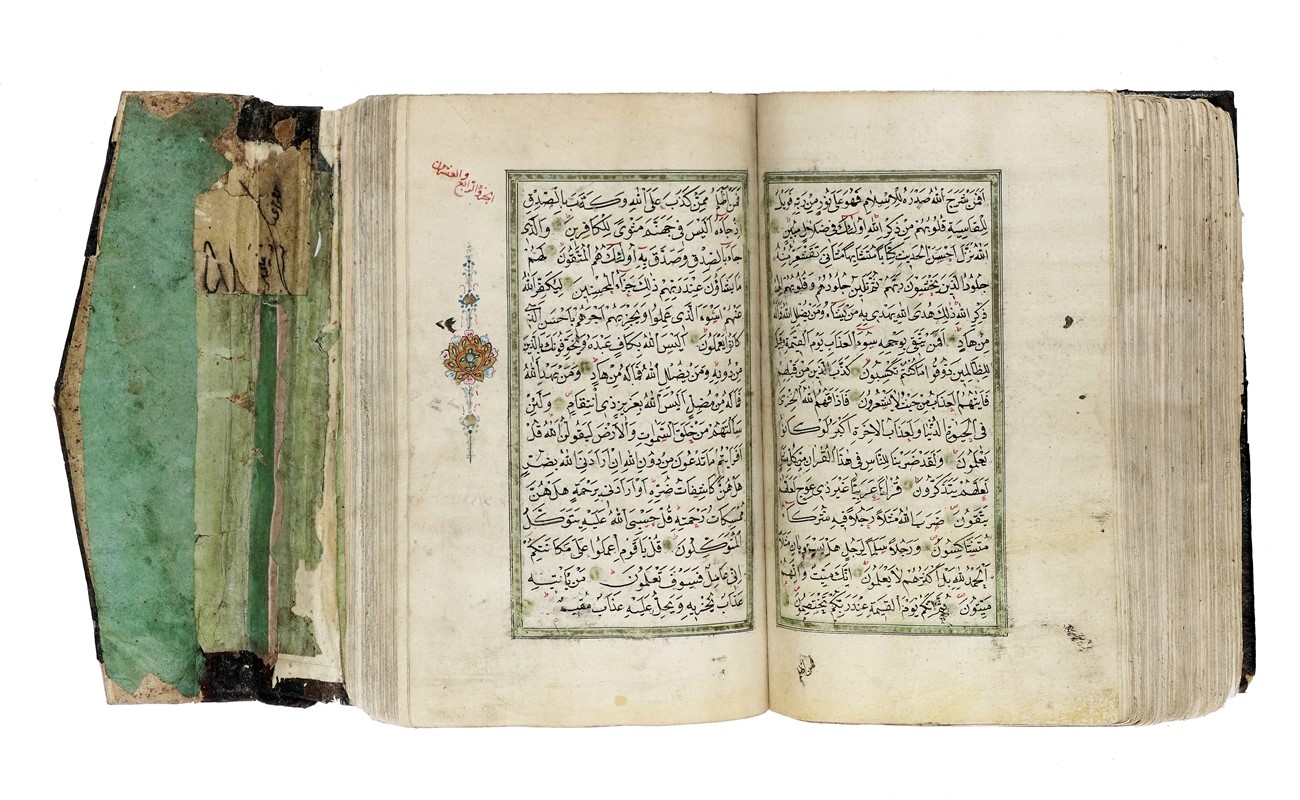 افمن شرح الله صدره للاسلام فهو على نور من ربه فويل
للقاسية قلوبهم من ذكر الله اولئك في ضلال مبين
الله نزل احسن الحديث كتابا متشابها مثاني تقشعر منه
جلود الذين يخشون ربهم ثم تلين جلودهم وقلوبهم الى
ذكر الله ذلك هدى الله يهدي به من يشاء ومن يضلل الله فماله
من هاد افمن يتقي بوجهه سوء العذاب يوم القيمة وقيل
للظالمين ذوقوا ما كنتم تكسبون كذب الذين من قبلهم
فاتيهم العذاب من حيث لا يشعرون فاذاقهم الله الخزي
في الحيوة الدنيا ولعذاب الاخرة اكبر لو كانوا
يعلمون ولقد ضربنا للناس في هذا القران من كل مثل
لعلهم يتذكرون قرانا عربيا غير ذي عوج لعلهم
يتقون ضرب الله مثلا رجلا فيه شركاء
متشاكسون ورجلا سلما لرجل هل يستويان مثلا
الحمد لله بل اكثرهم لا يعلمون انك ميت وانهم
ميتون ثم انكم يوم القيمة عند ربكم تختصمون
فمن اظلم
الجزو الرابع والعشرون
فمن اظلم ممن كذب على الله وكذب بالصدق
اذ جاءه اليس في جهنم مثوى للكافرين والذي
جاء بالصدق وصدق به اولئك هم المتقون لهم
ما يشاؤن عند ربهم ذلك جزاء المحسنين ليكفر الله
عنهم اسوء الذي عملوا ويجزيهم اجرهم باحسن الذي
كانوا يعملون اليس الله بكاف عبده ويخوفونك بالذين
من دونه ومن يضلل الله فما له من هاد ومن يهد الله
فما له من مضل اليس الله بعزيز ذي انتقام ولئن
سالتهم من خلق السموات والارض ليقولن الله قل
افرايتم ما تدعون من دون الله ان ارادني الله بضر
هل هن كاشفات ضره او ارادني برحمة هل هن
ممسكات رحمته قل حسبي الله عليه يتوكل
المتوكلون قل يا قوم اعملوا على مكانتكم
اني عامل فسوف تعلمون من ياتيه
عذاب يخزيه ويحل عليه عذاب مقيم